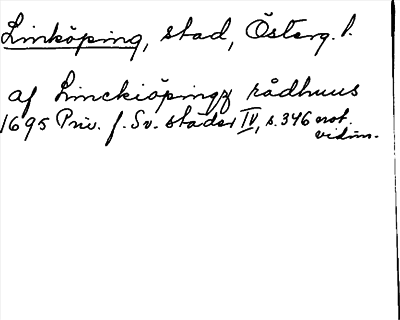 Linköping, stad, Österg. l.
af Linckiöpingz rådhuus
1695 Priv. f. Sv. städer IV, s. 346 not.
vidim.